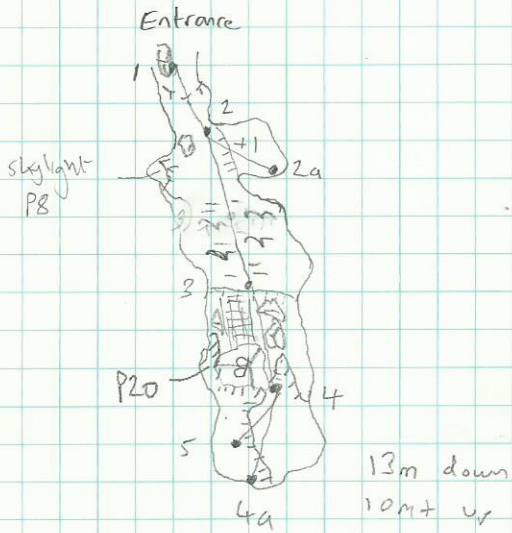 Entrance
1
2
+1
2a
skylight
P8
3
P20
4
5
13m down
10m+ up
4a